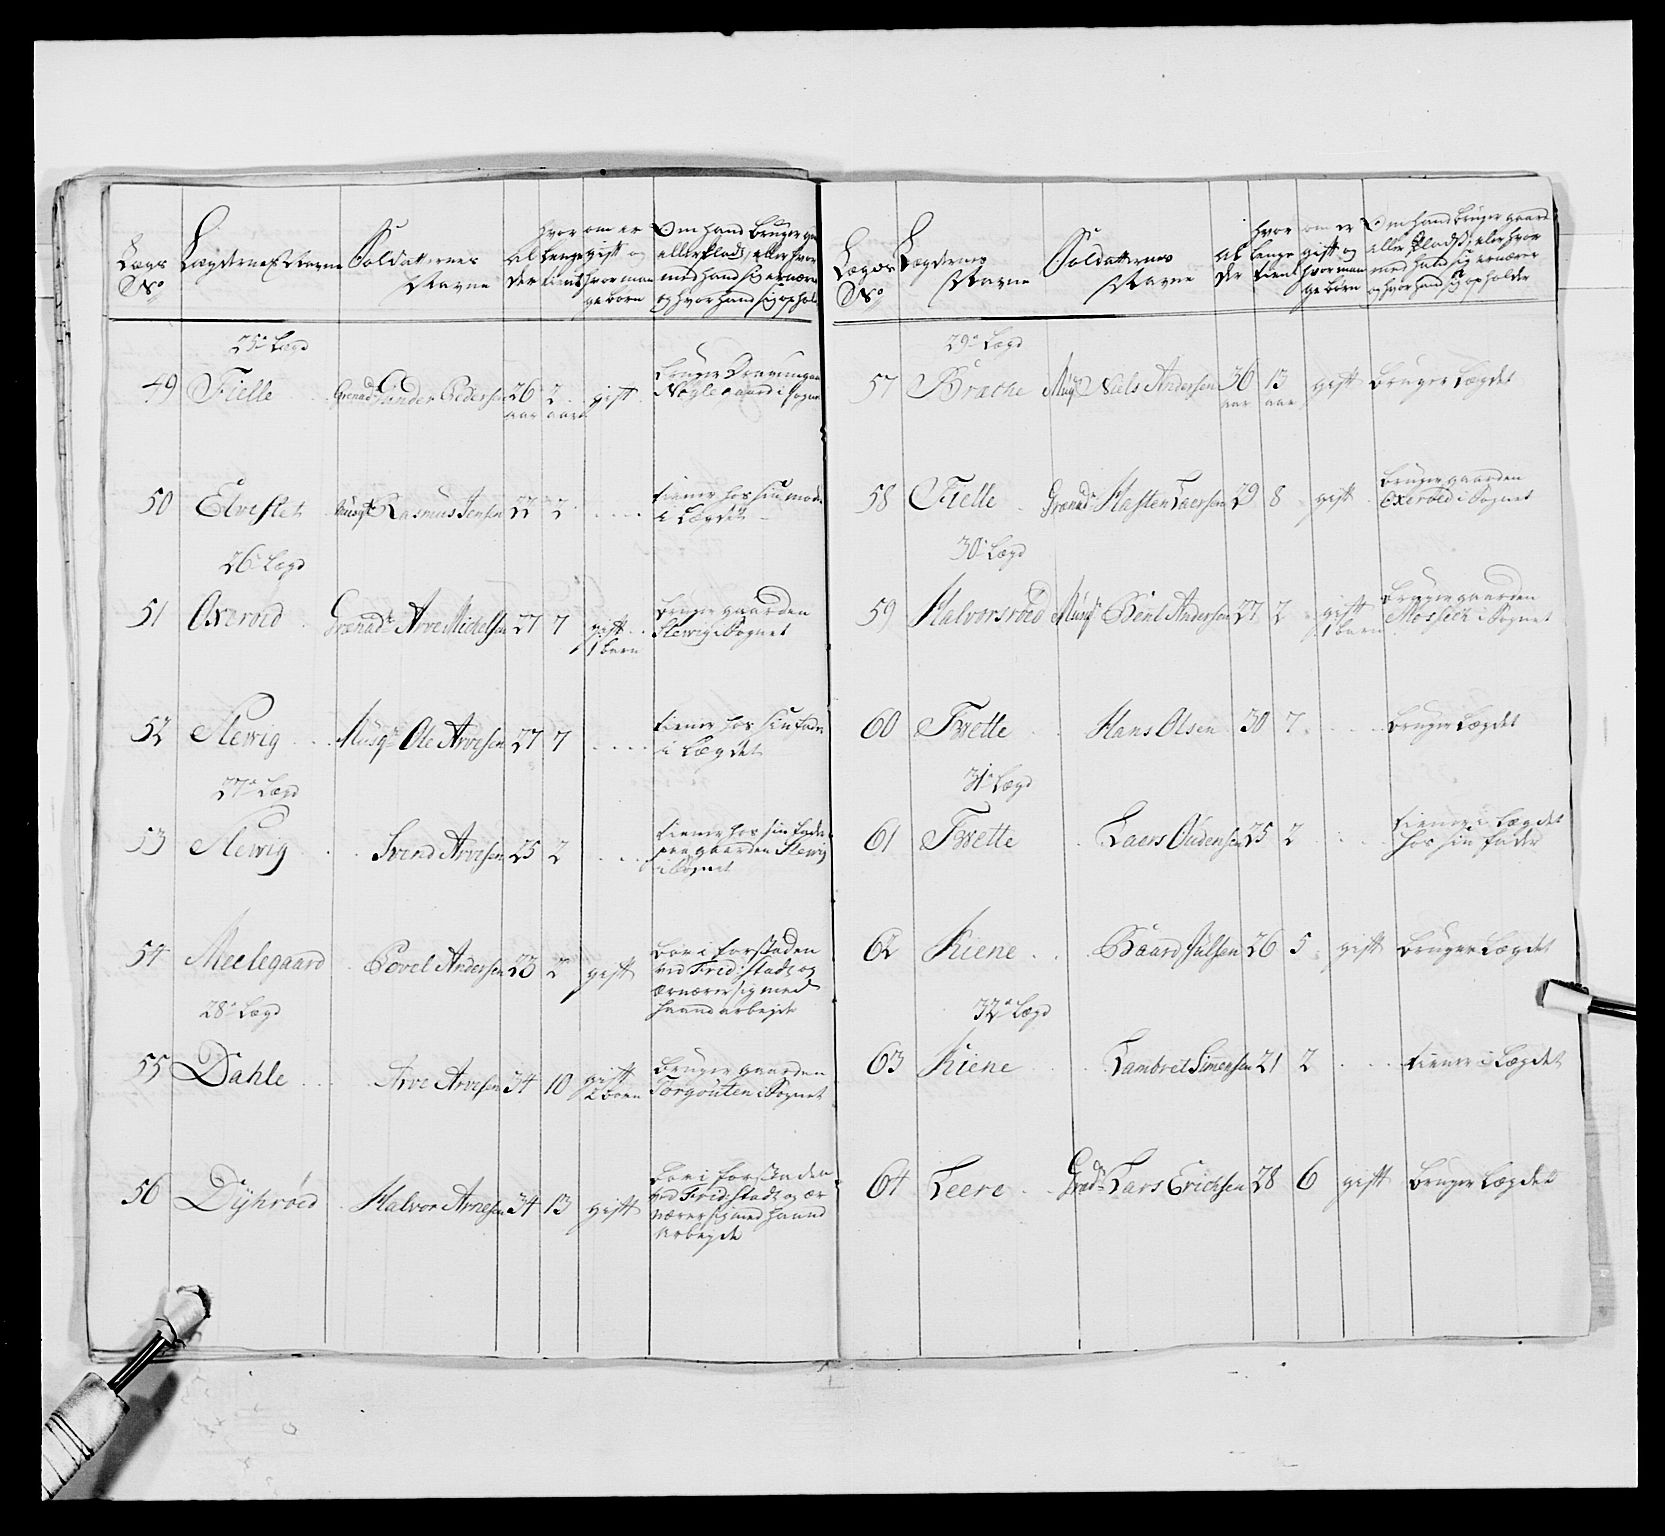 Lægs No
Lægdernes Navne
Soldatternes Navne
Alder
hvor længe tient
om er gift og hvor mange born
Om hand bruger gaard eller Plads, eller hvor med hand sig ernærer og hvor hand sig opholder
25de Lægd
49 Fielle Grenadr Gunder Pedersen 26 aar 2 aar gift bruger i Sogne
50 Elvestet Musqr Rasmus Jensen 22 2 tiener hos sin moder
i Lægdet
26de Lægd
51 Oxerød Grenadr Arve Michelsen 27 7 gift bruger gaarden
1 barn Slewig i Sognet
52 Slewig Musqr Ole Arvesen 27 7 tiener hos sin fader
i Lægdet
27de Lægd
53 Slewig Svend Arvesen 25 2 tiener hos sin fader
paa gaarden Slewig
i Sognet
54 Meelegaard Povel Andersen 23 2 gift boer i forstaden
ved Fred:stadt og
ærnærer sig med
haand arbejde
28de Lægd
55 Dahle Arve Arvesen 34 10 gift bruger gaarden
2 born Torgouten i Sognet
56 Dyhrøed Halvor Arnesen 34 13 gift boer i forstaden
ved Fred:stadt og ær
nærer sig med haand
arbejde
Lægds No
Lægdernes Navne
Soldatternes Navne
Alder
hvor længe tient
om er gift og hvor mange børn
Om hand bruger gaard eller Plads, eller hvor med hand sig ernærer og hvor hand sig opholder
29de Lægd
57 Musqr Niels Andersen 36 aar 13 aar gift bruger Lægdet
58 Fielle Grenadr Hasten Laersen 29 8 gift bruger gaarden
Oxeroed i Sognet
30de Lægd
59 Halvorsrøed Musqr Bent Andersen 27 2 gift bruger gaarden
1 barn i Sognet
60 Tvette Hans Olsen 30 7 bruger Lægdet
31de Lægd
61 Tvette Laers Oudensen 25 2 tiener i Lægdet
hos sin fader
62 Kiene Baard Julsen 26 5 gift bruger Lægdet
32de Lægd
63 Kiene Lambret Simensen 21 2 tiener i Lægdet
64 Leere Grendr Lars Erichsen 28 6 gift bruger Lægdet